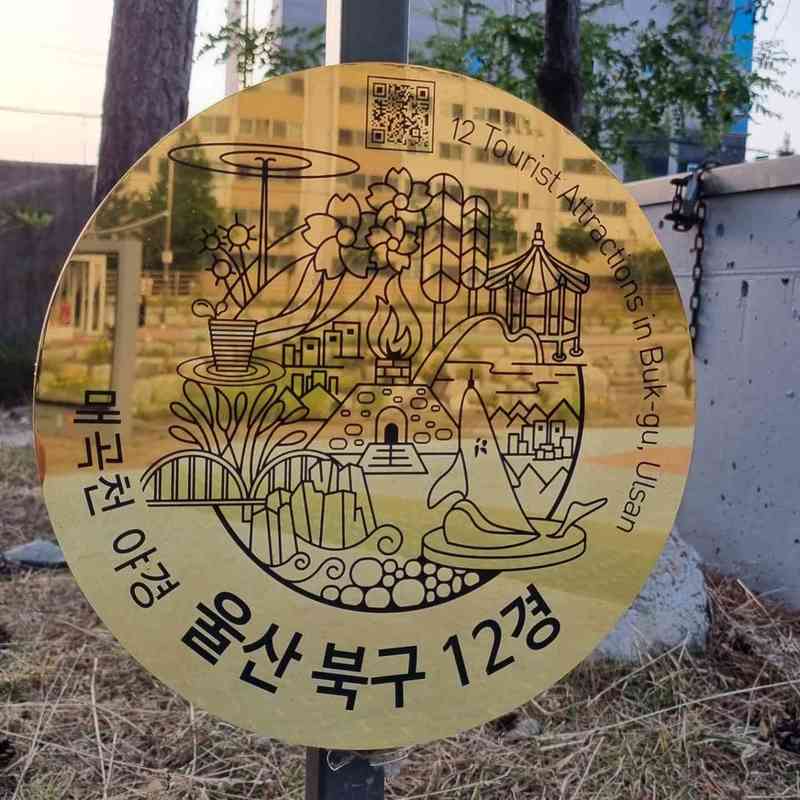 12 Tourist Attractions in Buk-gu, Ulsan
매곡천 야경
울산 북구 12경